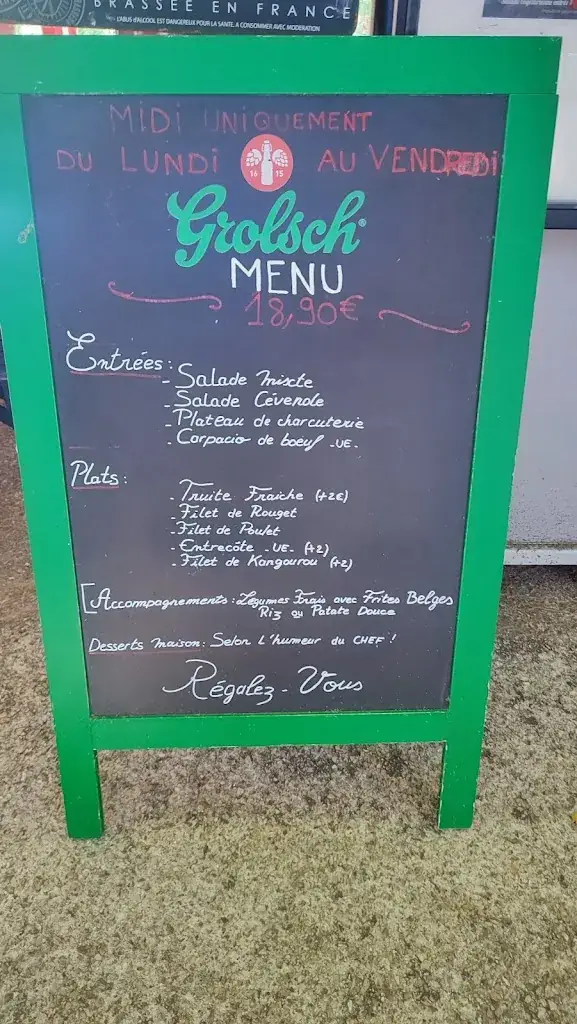 BRASSÉE EN FRANCE
L'ABUS D'ALCOOL EST DANGEREUX POUR LA SANTÉ, A CONSOMMER AVEC MODERATION
MIDI UNIQUEMENT
DU LUNDI AU VENDREDI
16 15
Grolsch
MENU
18,90€
Entrées:
- Salade mixte
- Salade Cévenole
- Plateau de charcuterie
- Carpacio de boeuf -UE-
Plats:
- Truite Fraiche (+2€)
- Filet de Rouget
- Filet de Poulet
- Entrecôte -UE- (+2)
- Filet de Kangourou (+2)
[Accompagnements: Légumes Frais avec Frites Belges
Riz ou Patate Douce
Desserts maison: Selon L'humeur du CHEF!
Régalez-Vous